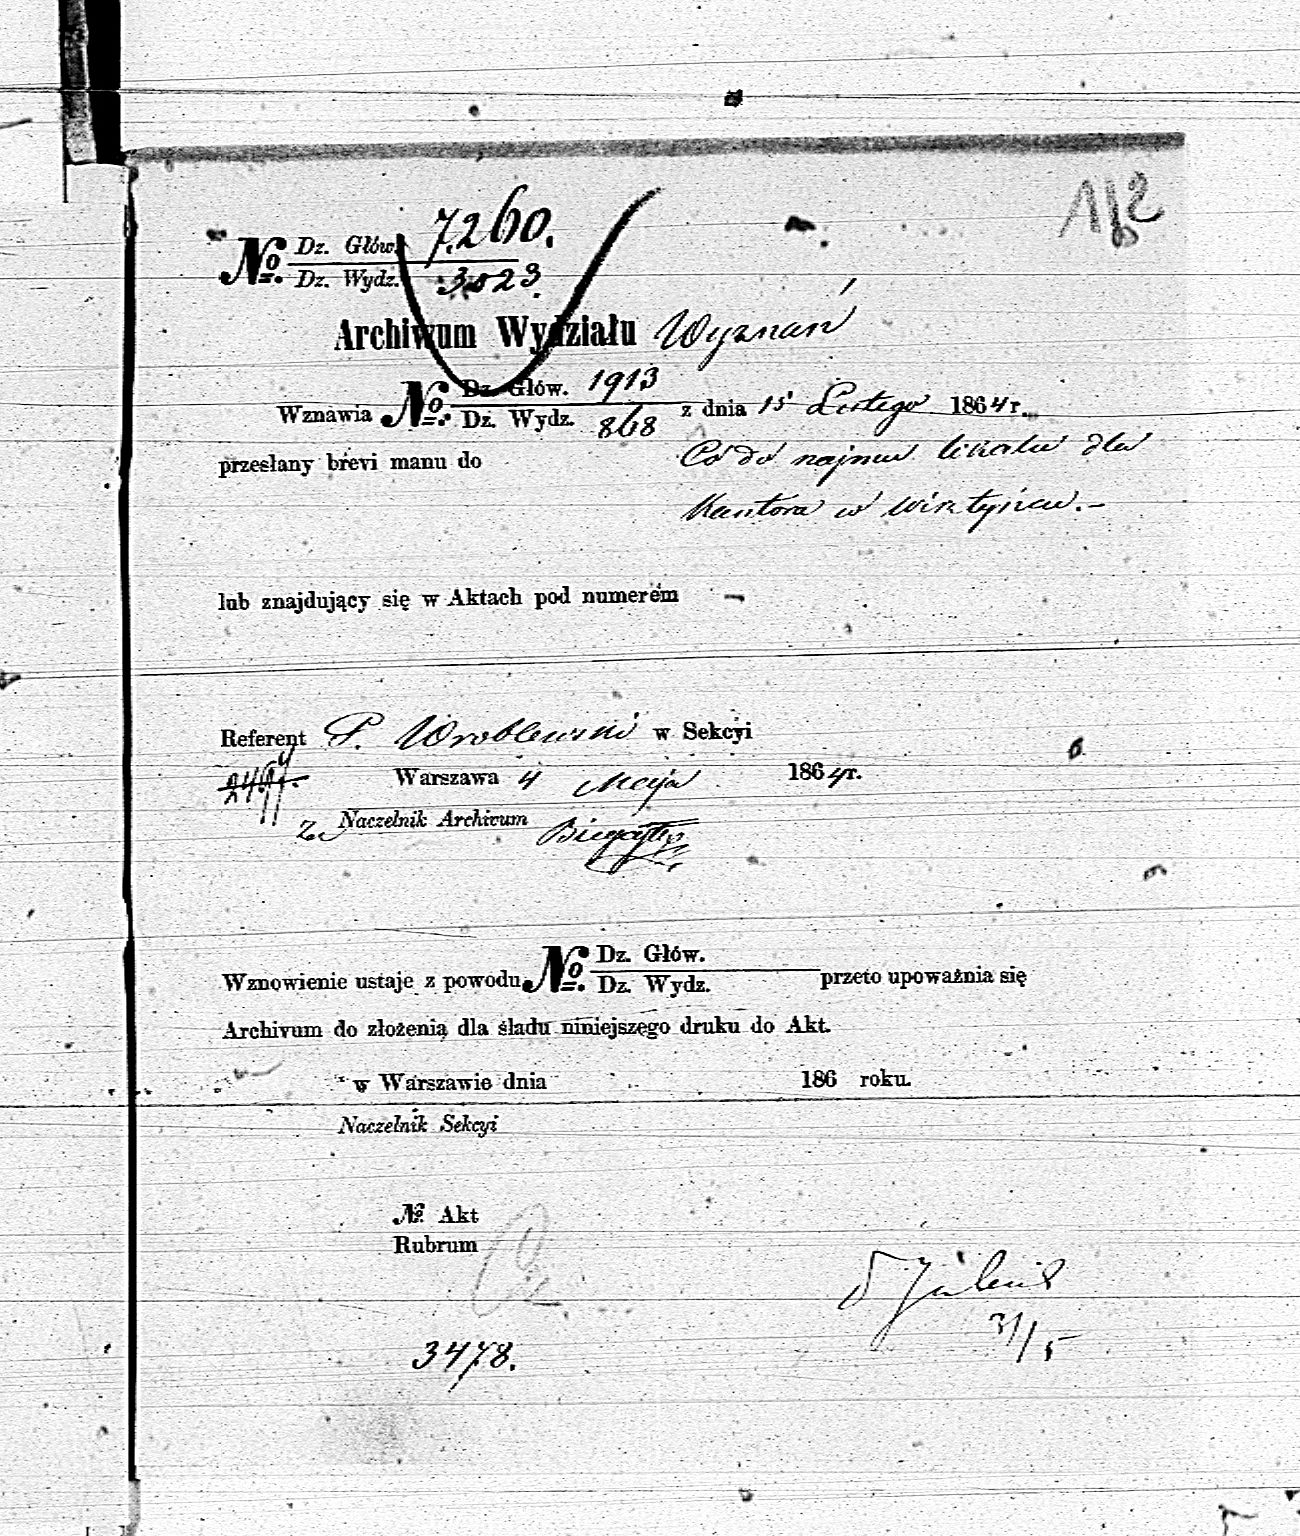 № Dz. Głów. 7260.
Dz. Wydz. 3023.
Archiwum Wydziału Wyznań
Wznawia № Dz. Głów. 1913 z dnia 15 Lutego 1864 r.
Dz. Wydz. 868
przesłany brevi manu do Co do najmu lokalu dla
Kantora w Wisztyńcu.—
lub znajdujący się w Aktach pod numerem —
Referent P. Wroblewski w Sekcyi
Warszawa 4 Maja 1864 r.
Za Naczelnik Archivum
Wznowienie ustaje z powodu № Dz. Głów. przeto upoważnia się
Dz. Wydz.
Archivum do złożenia dla śladu niniejszego druku do Akt.
w Warszawie dnia 186 roku.
Naczelnik Sekcyi
№ Akt
Rubrum
31/5
3478.